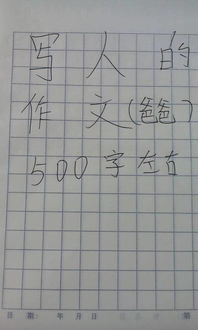 写人的
作文(爸爸)
500字左右
日期： 年 月 日 第